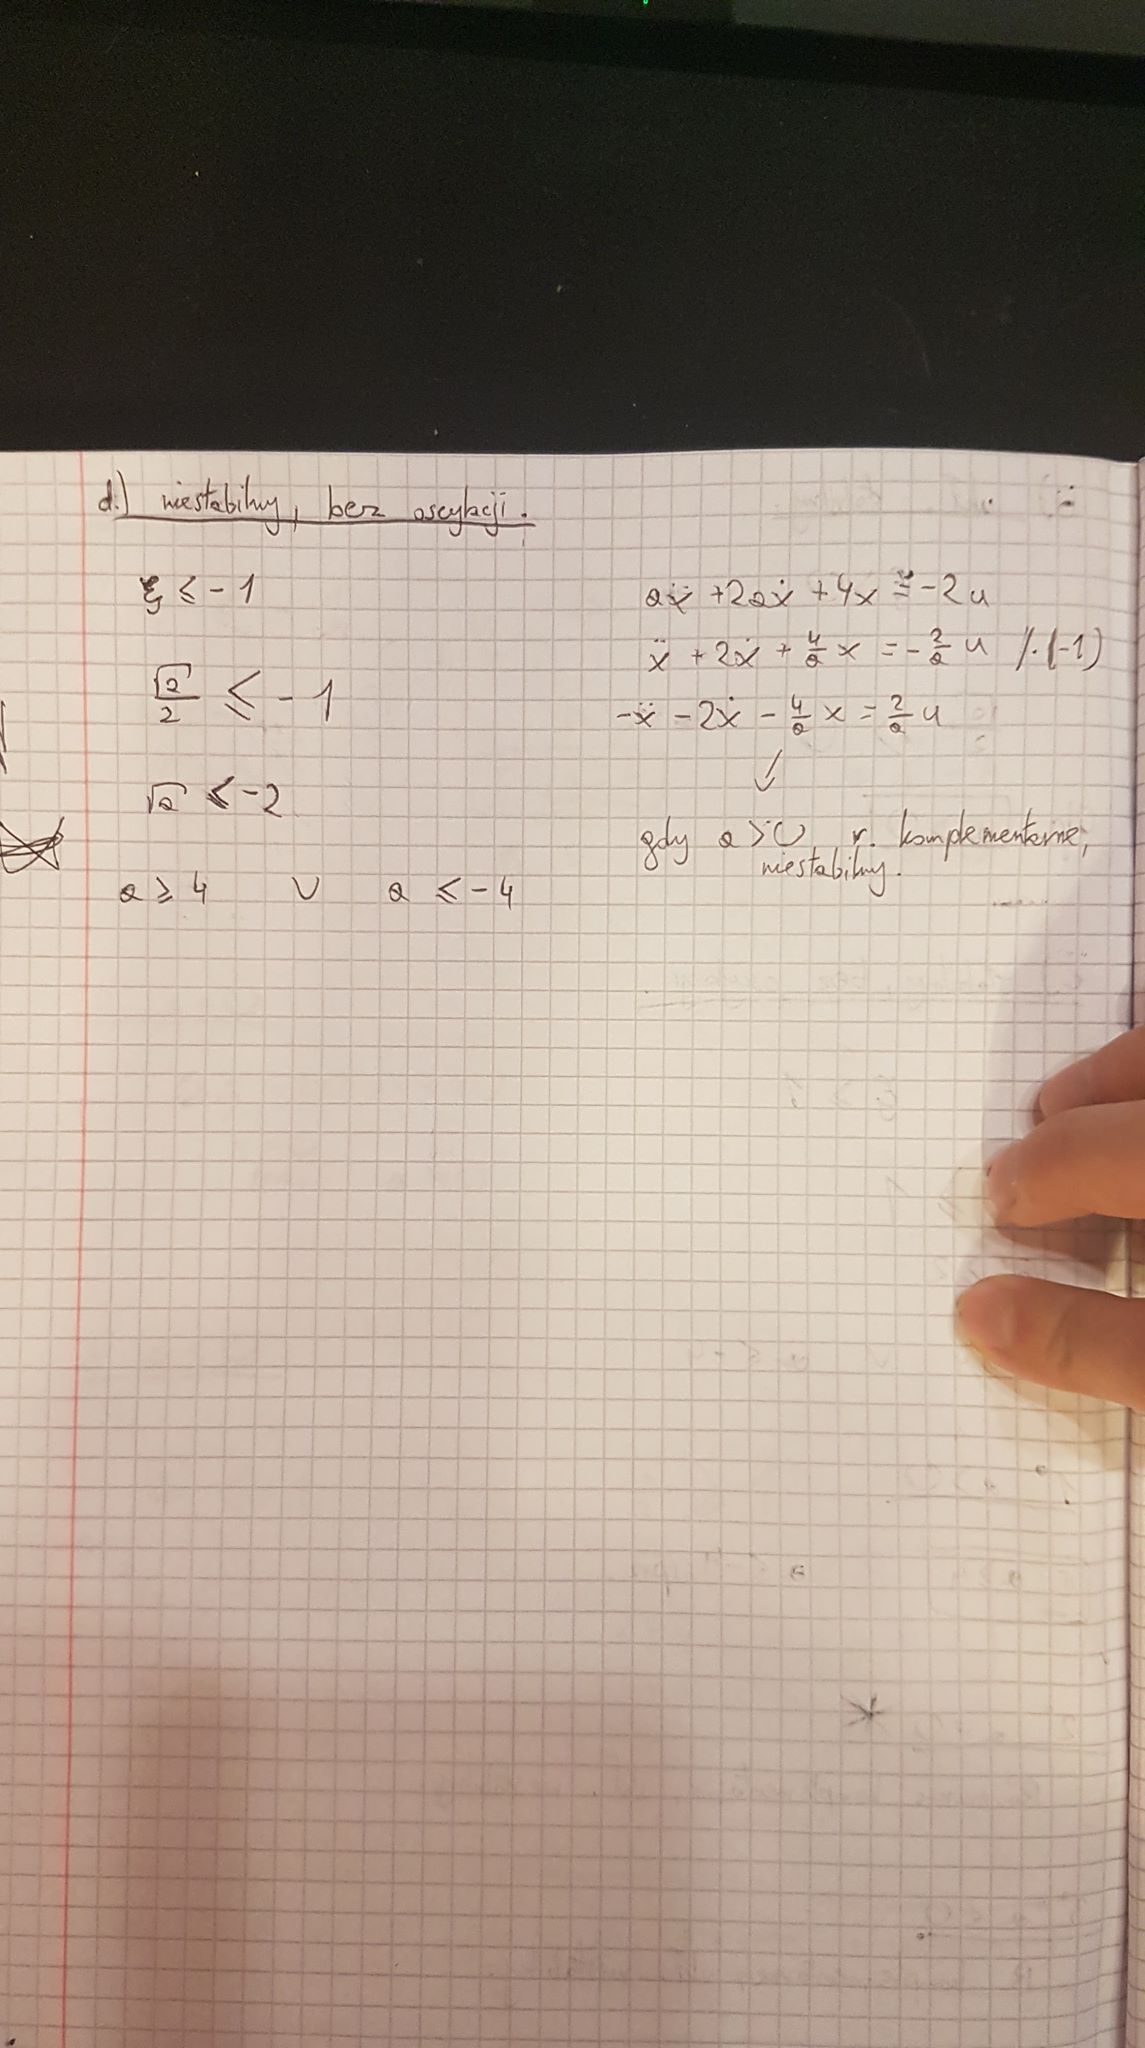 d.) niestabilny, bez oscylacji.
ξ ≤ -1
√a/2 ≤ -1
√a ≤ -2
a ≥ 4 ∨ a ≤ -4
aẍ + 2aẋ + 4x = -2u
ẍ + 2ẋ + 4/a x = -2/a u /·(-1)
-ẍ - 2ẋ - 4/a x = 2/a u
↓
gdy a > 0, r. komplementarne,
niestabilny.